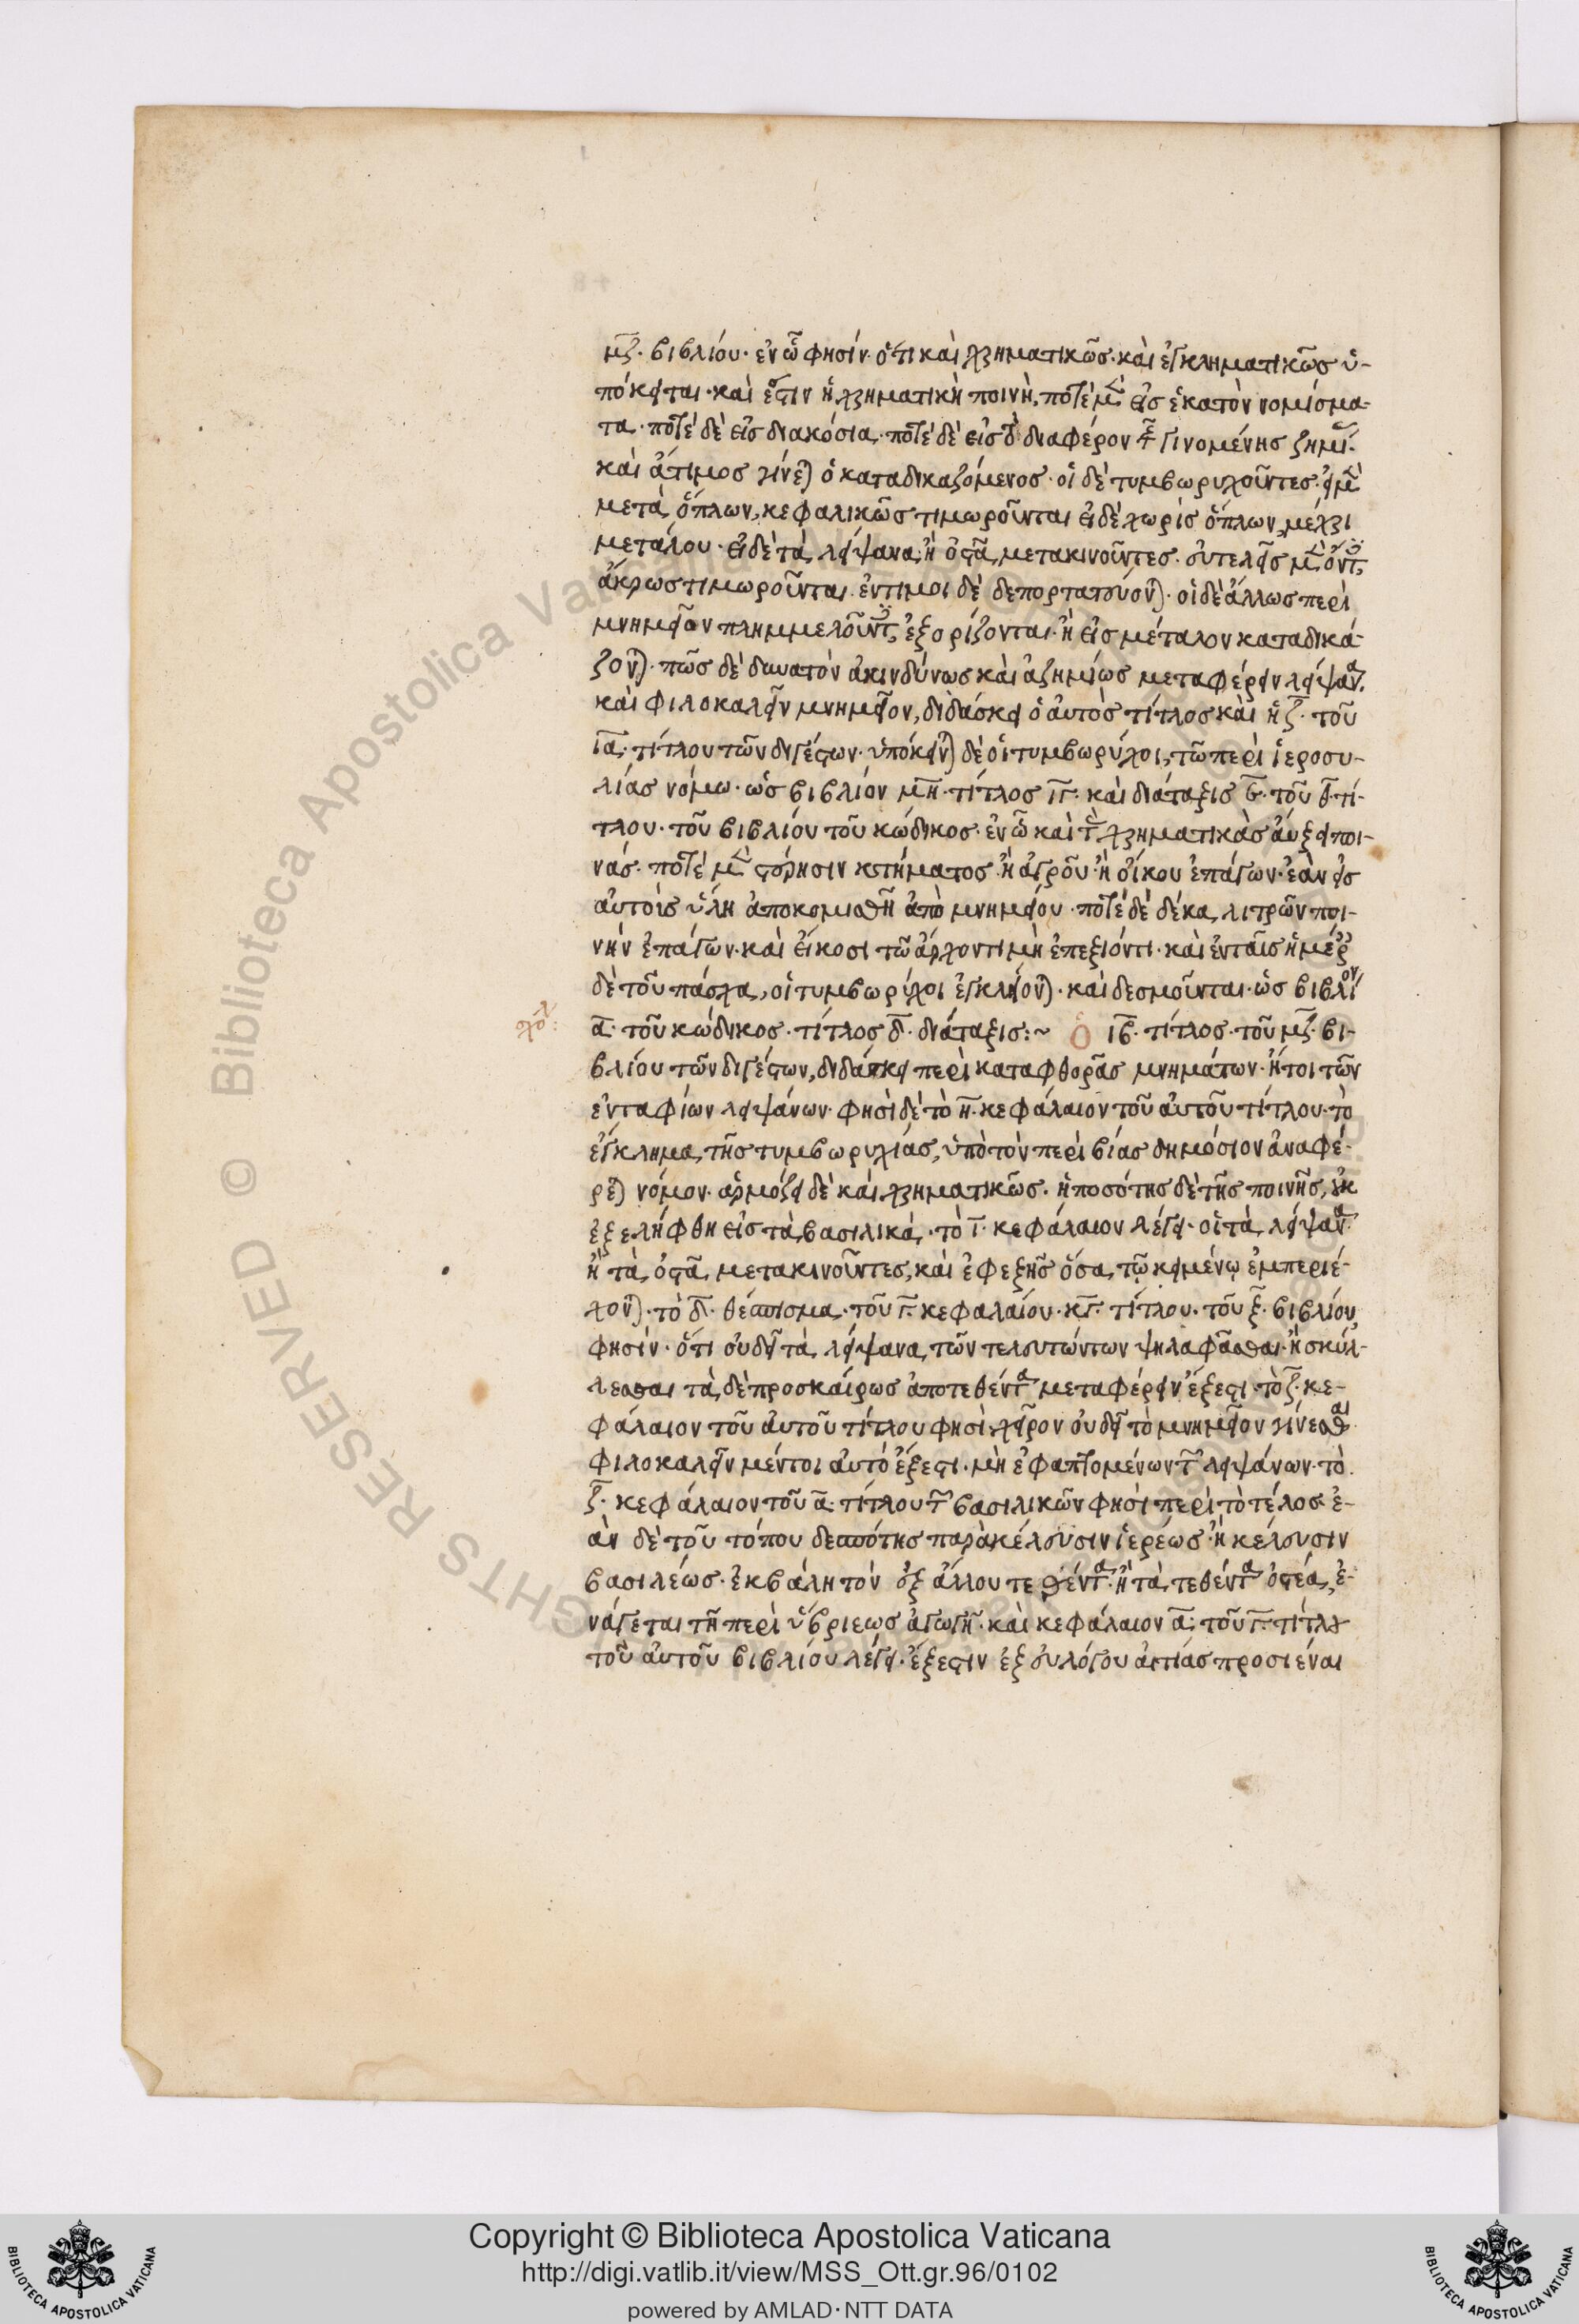 μζ. βιβλίου· ἐν ὧ φησίν· ὅτι καὶ χρηματικῶς· καὶ ἐγκληματικῶς ὑ-
πόκειται· καὶ ἔστιν ἡ χρηματικὴ ποινὴ, ποτὲ μὲν εἰς ἑκατὸν νομίσμα-
τα· ποτὲ δὲ εἰς διακόσια· ποτὲ δὲ εἰς τὸ διαφέρον τῆς γινομένης ζημίας·
καὶ ἄτιμος γίνεται ὁ καταδικαζόμενος· οἱ δὲ τυμβωρυχοῦντες· εἰ μὲν
μετὰ ὅπλων, κεφαλικῶς τιμωροῦνται εἰ δὲ χωρὶς ὅπλων, μέχρι
μετάλου· εἰ δὲ τὰ λείψανα, ἢ ὀστᾶ, μετακινοῦντες· εὐτελεῖς μὲν ὄντες,
ἄκρως τιμωροῦνται ἔντιμοι δὲ δεπορτατεύονται· οἱ δὲ ἄλλως περὶ
μνημεῖον πλημμελοῦντες, ἐξορίζονται· ἢ εἰς μέταλον καταδικά-
ζονται· πῶς δὲ δυνατὸν ἀκινδύνως καὶ ἀζημίως μεταφέρειν λείψανα.
καὶ φιλοκαλεῖν μνημεῖον, διδάσκει ὁ αὐτὸς τίτλος καὶ ἡ ζ. τοῦ
ια. τίτλου τῶν διγέστων· ὑπόκεινται δὲ οἱ τυμβωρύχοι, τῶ περὶ ἱεροσυ-
λίας νόμω· ὡς βιβλίον μη. τίτλος ιγ. καὶ διάταξις ϛ. τοῦ θ. τί-
τλου· τοῦ βιβλίου τοῦ κώδικος· ἐν ὧ καὶ τὰς χρηματικὰς αὔξει ποι-
νάς· ποτὲ μὲν στέρησιν κτήματος· ἢ ἀγροῦ· ἢ οἴκου ἐπάγων· ἐὰν εἰς
αὐτοὶς ὕλη ἀποκομισθῆ ἀπὸ μνημείου· ποτὲ δὲ δέκα λιτρῶν ποι-
νὴν ἐπάγων· καὶ εἴκοσι τῶ ἄρχοντι μὴ ἐπεξιόντι· καὶ ἐν ταῖς ἡμέραις
δὲ τοῦ πάσχα, οἱ τυμβωρύχοι ἐγκλείονται· καὶ δεσμοῦνται· ὡς βιβλίον
σχόλ: α. τοῦ κώδικος· τίτλος δ. διάταξις:~ Ὁ ιβ. τίτλος· τοῦ μζ. βι-
βλίου τῶν διγέστων, διδάσκει περὶ καταφθορᾶς μνημάτων· ἤτοι τῶν
ἐνταφίων λειψάνων· φησὶ δὲ τὸ η. κεφάλαιον τοῦ αὐτοῦ τίτλου· τὸ
ἔγκλημα, τῆς τυμβωρυχίας, ὑπὸ τὸν περὶ βίας δημόσιον ἀναφέ-
ρεται νόμον· ἁρμόζει δὲ καὶ χρηματικῶς· ἡ ποσότης δὲ τῆς ποινῆς, οὐκ
ἐξελήφθη εἰς τὰ βασιλικά· τὸ ι. κεφάλαιον λέγει· οἱ τὰ λείψανα·
ἢ τὰ ὀστᾶ μετακινοῦντες, καὶ ἐφεξῆς ὅσα, τῷ κειμένῳ ἐμπεριέ-
χονται· τὸ δ. θέσπισμα· τοῦ γ. κεφαλαίου· κγ. τίτλου· τοῦ ξ. βιβλίου,
φησίν· ὅτι οὐ δεῖ τὰ λείψανα, τῶν τελευτώντων ψηλαφᾶσθαι· ἢ σκύλ-
λεσθαι τὰ δὲ προσκαίρως ἀποτεθέντα μεταφέρειν ἔξεστι· τὸ ζ. κε-
φάλαιον τοῦ αὐτοῦ τίτλου φησὶ· χεῖρον οὐ δεῖ τὸ μνημεῖον γίνεσθαι
φιλοκαλεῖν μέντοι αὐτὸ ἔξεστι· μὴ ἐφαπτομένων τῶν λειψάνων· τὸ
ζ. κεφάλαιον τοῦ α. τίτλου τῶν βασιλικῶν φησὶ περὶ τὸ τέλος· ἐ-
ὰν δὲ τοῦ τόπου δεσπότης παρὰ κέλευσιν ἱερέως· ἢ κέλευσιν
βασιλέως· ἐκβάλη τὸν ἐξ ἄλλου τεθέντα· ἢ τὰ τεθέντα ὀστέα, ἐ-
νάγεται τῆ περὶ ὕβρεως ἀγωγῆ· καὶ κεφάλαιον α. τοῦ γ. τίτλου
τοῦ αὐτοῦ βιβλίου λέγει· ἔξεστιν ἐξ εὐλόγου αἰτίας προσιέναι
Copyright © Biblioteca Apostolica Vaticana
http://digi.vatlib.it/view/MSS_Ott.gr.96/0102
powered by AMLAD·NTT DATA
BIBLIOTECA APOSTOLICA VATICANA
BIBLIOTECA APOSTOLICA VATICANA